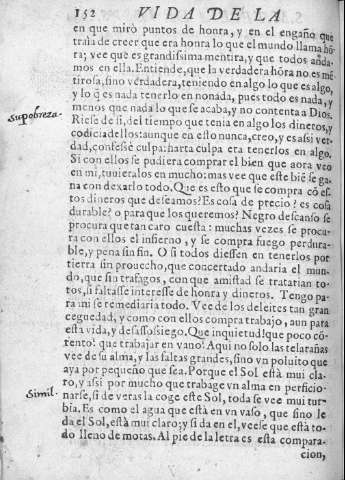 152 VIDA DE LA
en que mirò puntos de honra, y en el engaño que
traîa de creer que era honra lo que el mundo llama hō
ra; vee que es grandissima mentira, y que todos anda-
mos en ella. Entiende, que la verdadera hōra no es mē
tirosa, sino verdadera, teniendo en algo lo que es algo,
y lo q̃ es nada tenerlo en nonada, pues todo es nada, y
menos que nada lo que se acaba, y no contenta a Dios.
Su pobreza.
Riese de si, del tiempo que tenia en algo los dineros, y
codicia dellos: aunque en esto nunca, creo, y es assi ver-
dad, confessè culpa: harta culpa era tenerlos en algo.
Si con ellos se pudiera comprar el bien que aora veo
en mi, tuuieralos en mucho: mas vee que este biē se ga-
na con dexarlo todo. Que es esto que se compra cō es-
tos dineros que desseamos? Es cosa de precio? es cosa
durable? o para que los queremos? Negro descanso se
procura que tan caro cuesta: muchas vezes se procu-
ra con ellos el infierno, y se compra fuego perdura-
ble, y pena sin fin. O si todos diessen en tenerlos por
tierra sin prouecho, que concertado andaria el mun-
do, que sin trafagos, con que amistad se tratarian to-
tos, si faltasse interesse de honra y dineros. Tengo pa-
ra mi se remediaria todo. Vee de los deleites tan gran
ceguedad, y como con ellos compra trabajo, aun para
esta vida, y desassossiego. Que inquietud! que poco cō-
tento! que trabajar en vano! Aqui no solo las telarañas
vee de su alma, y las faltas grandes, sino vn poluito que
aya por pequeño que sea. Porque el Sol està mui cla-
ro, y assi por mucho que trabage vn alma en perficio-
Simil.
narse, si de veras la coge este Sol, toda se vee mui tur-
bia. Es como el agua que està en vn vaso, que sino le
da el Sol, està mui claro; y si da en el, veese que està to-
do lleno de motas. Al pie de la letra es esta compara-
cion,